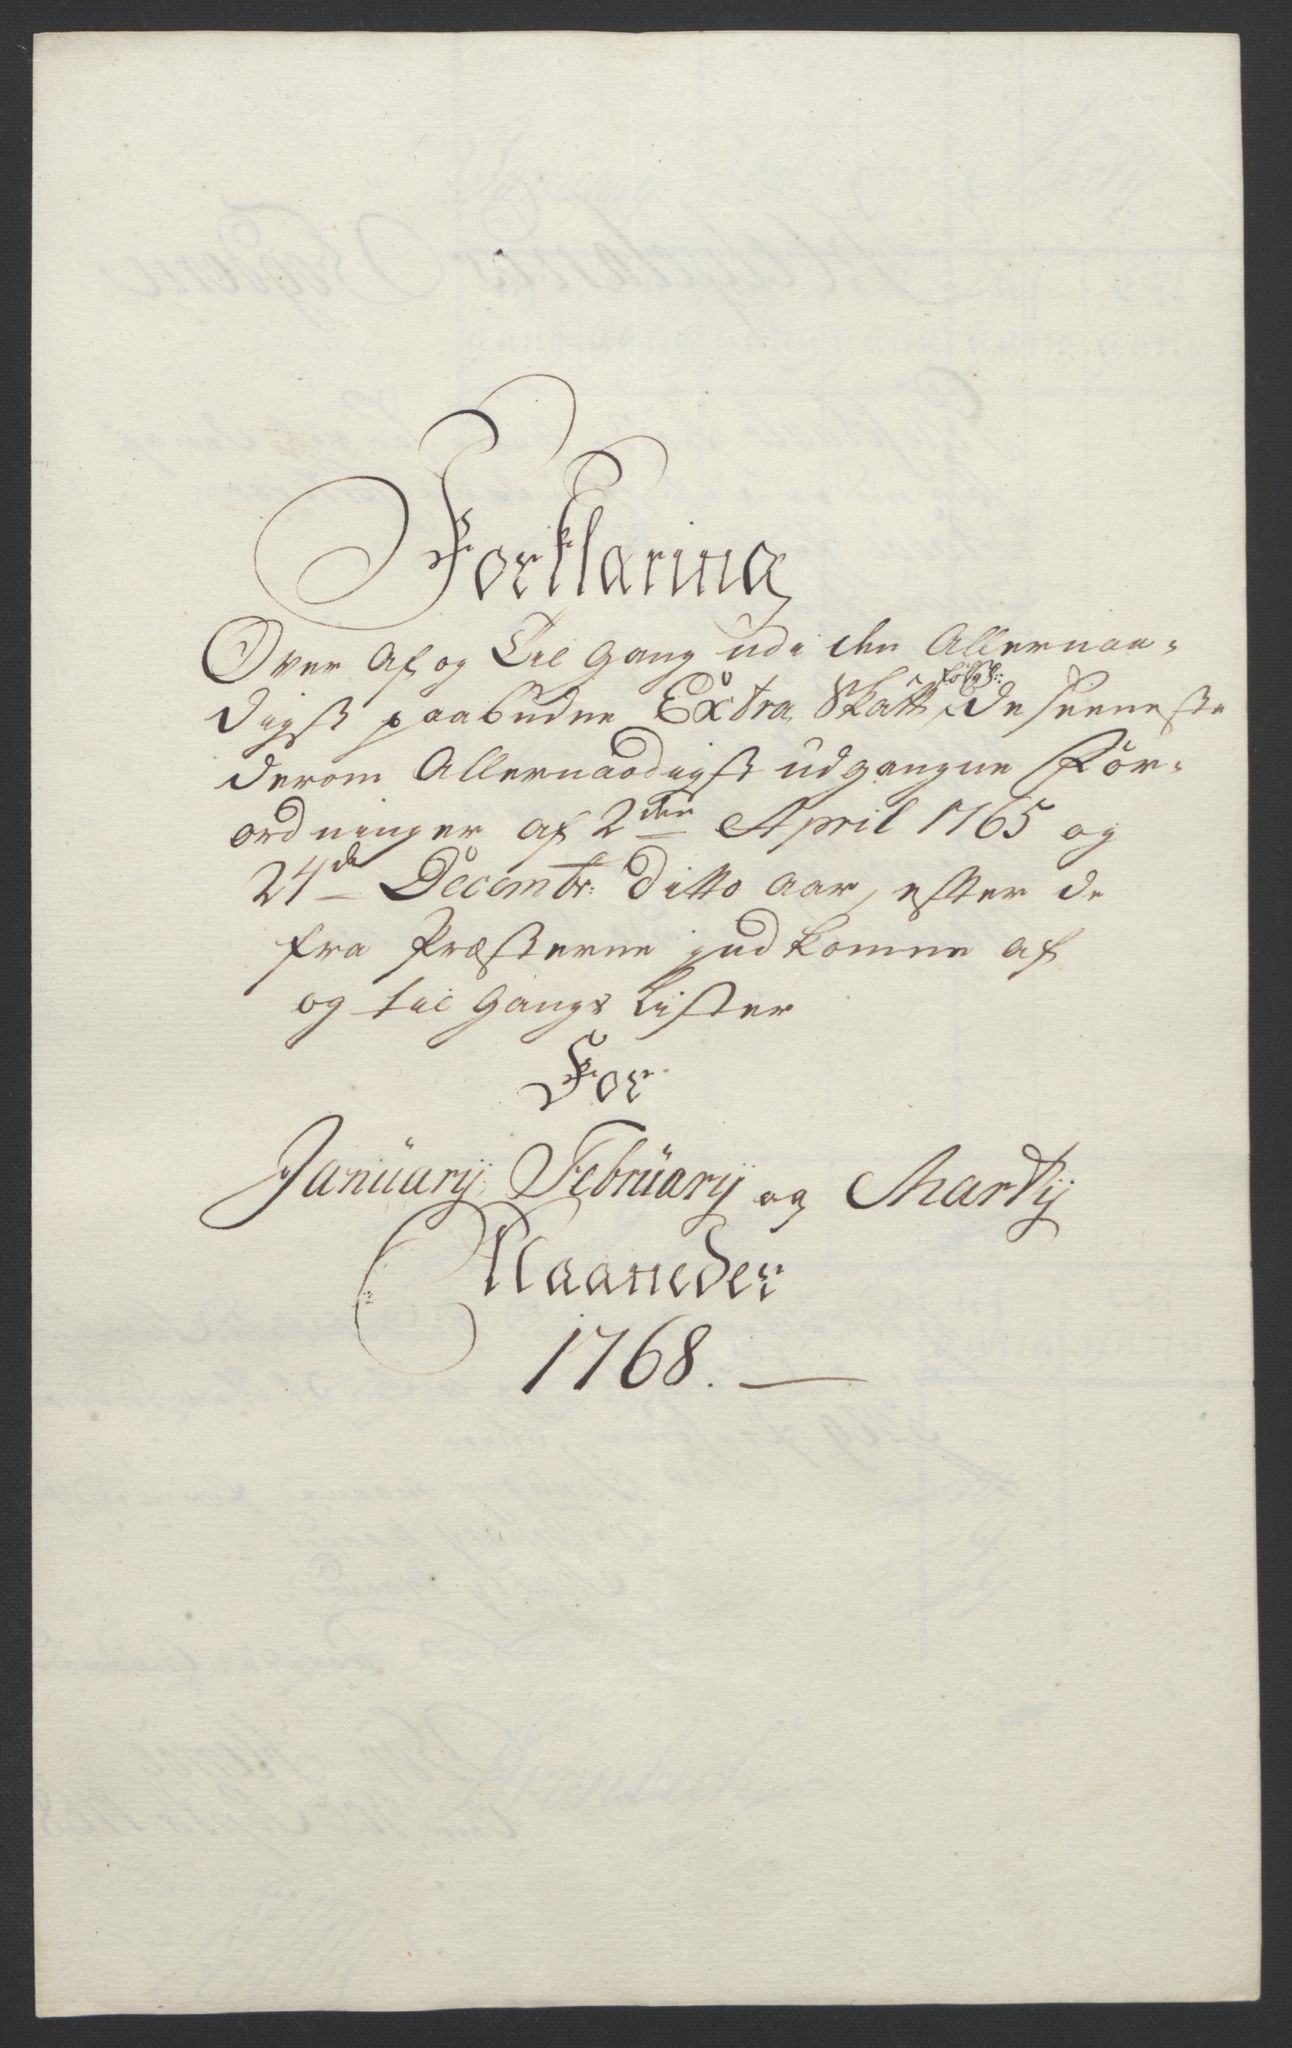 Forklaring
Over Af og Til Gang udi den Allernaa-
digst paabudne Extra Skatt følge de seeneste
derom Allernaadigst udgangne For-
ordninger af 2den April 1765 og
24de Decembr: ditto Aar, efter de
fra Præsterne indkomne af
og til Gangs Lister
For
January, February og Marty
Maaneder
1768.